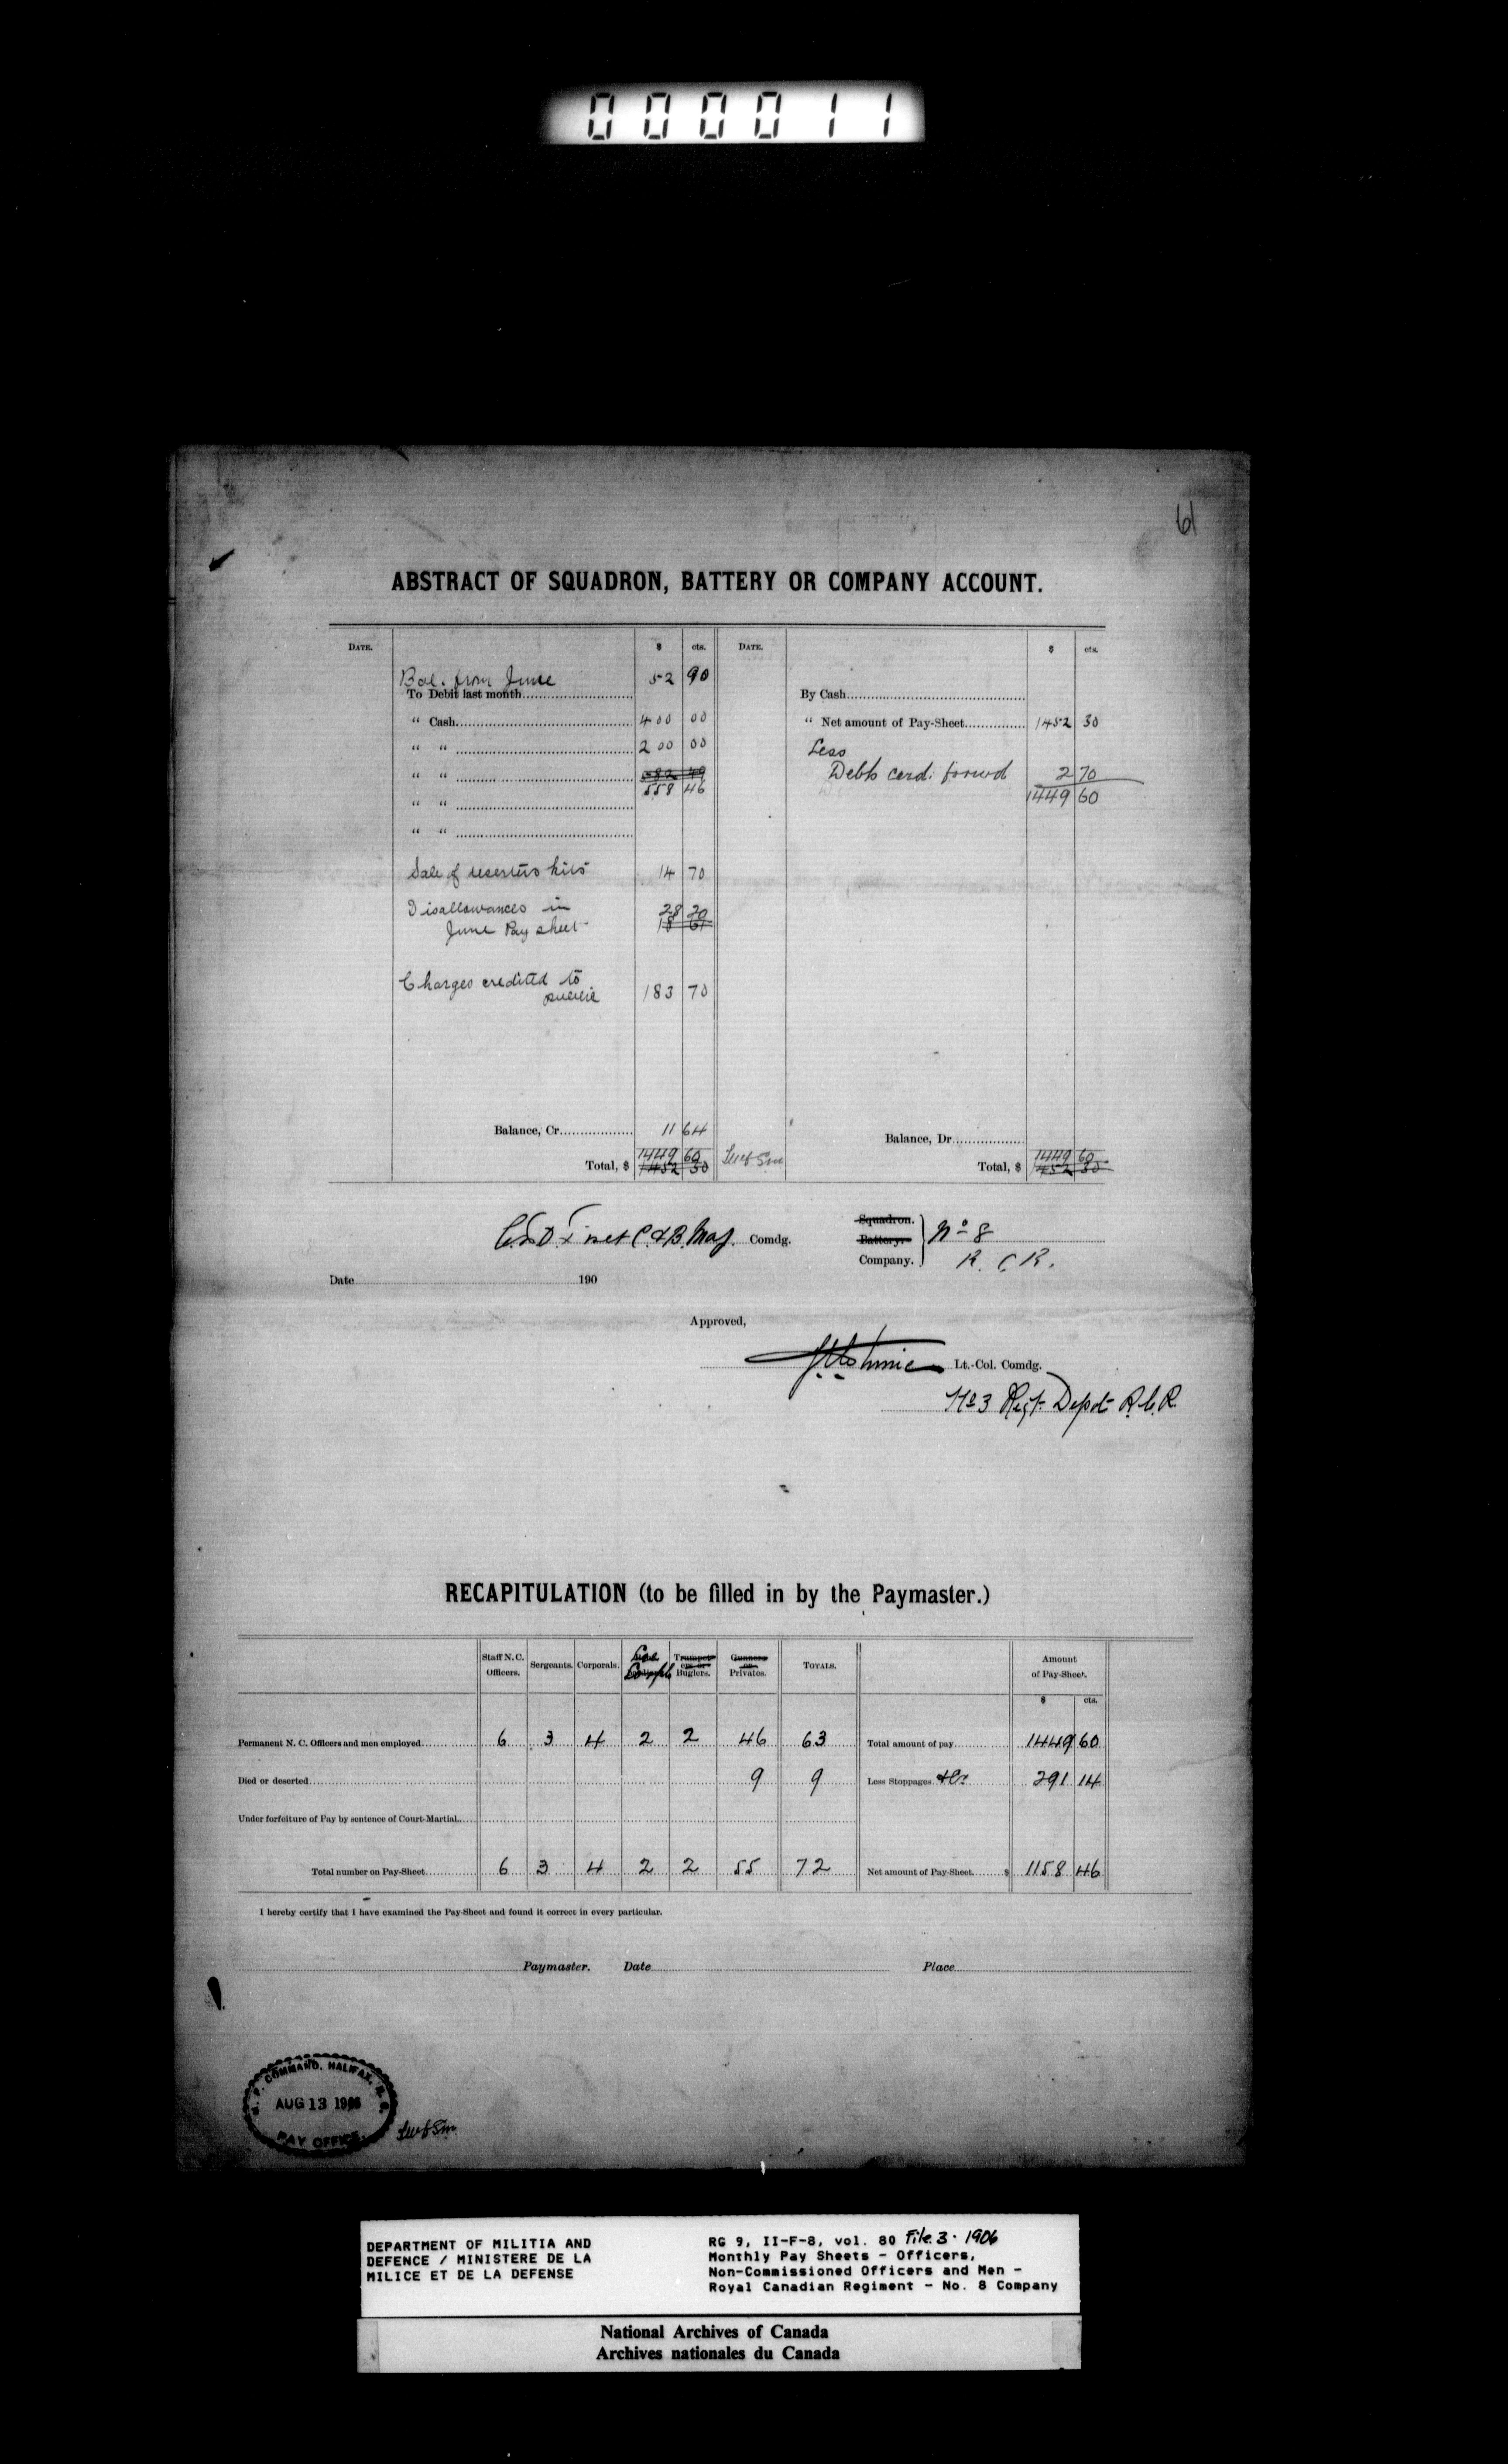 000011
61
ABSTRACT OF SQUADRON, BATTERY OR COMPANY ACCOUNT.
DATE. $ cts. DATE. $ cts.
Bal. from June 52 90
To Debit last month By Cash
" Cash 400 00 " Net amount of Pay-Sheet 1452 30
" " 200 00 Less
" " 582 49 Debts card. forwd 2 70
558 46 1449 60
" "
" "
Sale of deserters kits 14 70
Disallowances in 28 20
June Pay sheet 18 61
Charges credited to
public 183 70
Balance, Cr. 11 64 Balance, Dr.
1449 60 1449 60
Total, $ 1452 30 Total, $ 1452 30
C. & B. Maj. Comdg.
Squadron.
Battery.
Company. No 8
R. C. R.
Date 190
Approved,
Lt.-Col. Comdg.
No 3 Regt. Depot R.C.R.
RECAPITULATION (to be filled in by the Paymaster.)
Staff N. C. Officers. Sergeants. Corporals. Trumpeters or Buglers. Gunners or Privates. TOTALS. Amount of Pay-Sheet.
$ cts.
Permanent N. C. Officers and men employed 6 3 4 2 2 46 63 Total amount of pay 1449 60
Died or deserted 9 9 Less Stoppages 291 14
Under forfeiture of Pay by sentence of Court-Martial
Total number on Pay-Sheet 6 3 4 2 2 55 72 Net amount of Pay-Sheet $ 1158 46
I hereby certify that I have examined the Pay-Sheet and found it correct in every particular.
Paymaster. Date Place
COMMAND, HALIFAX, N. S.
AUG 13 1906
PAY OFFICE
DEPARTMENT OF MILITIA AND
DEFENCE / MINISTERE DE LA
MILICE ET DE LA DEFENSE
RG 9, II-F-8, vol. 80 File 3. 1906
Monthly Pay Sheets - Officers,
Non-Commissioned Officers and Men -
Royal Canadian Regiment - No. 8 Company
National Archives of Canada
Archives nationales du Canada